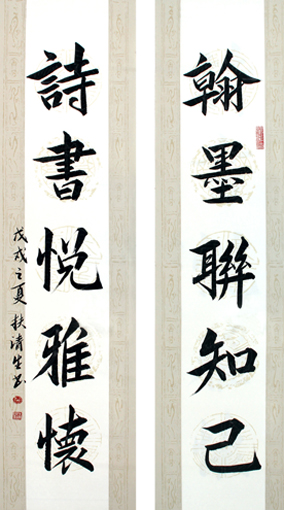 翰墨聯知己
詩書悦雅懷
戊戌之夏扶清生书